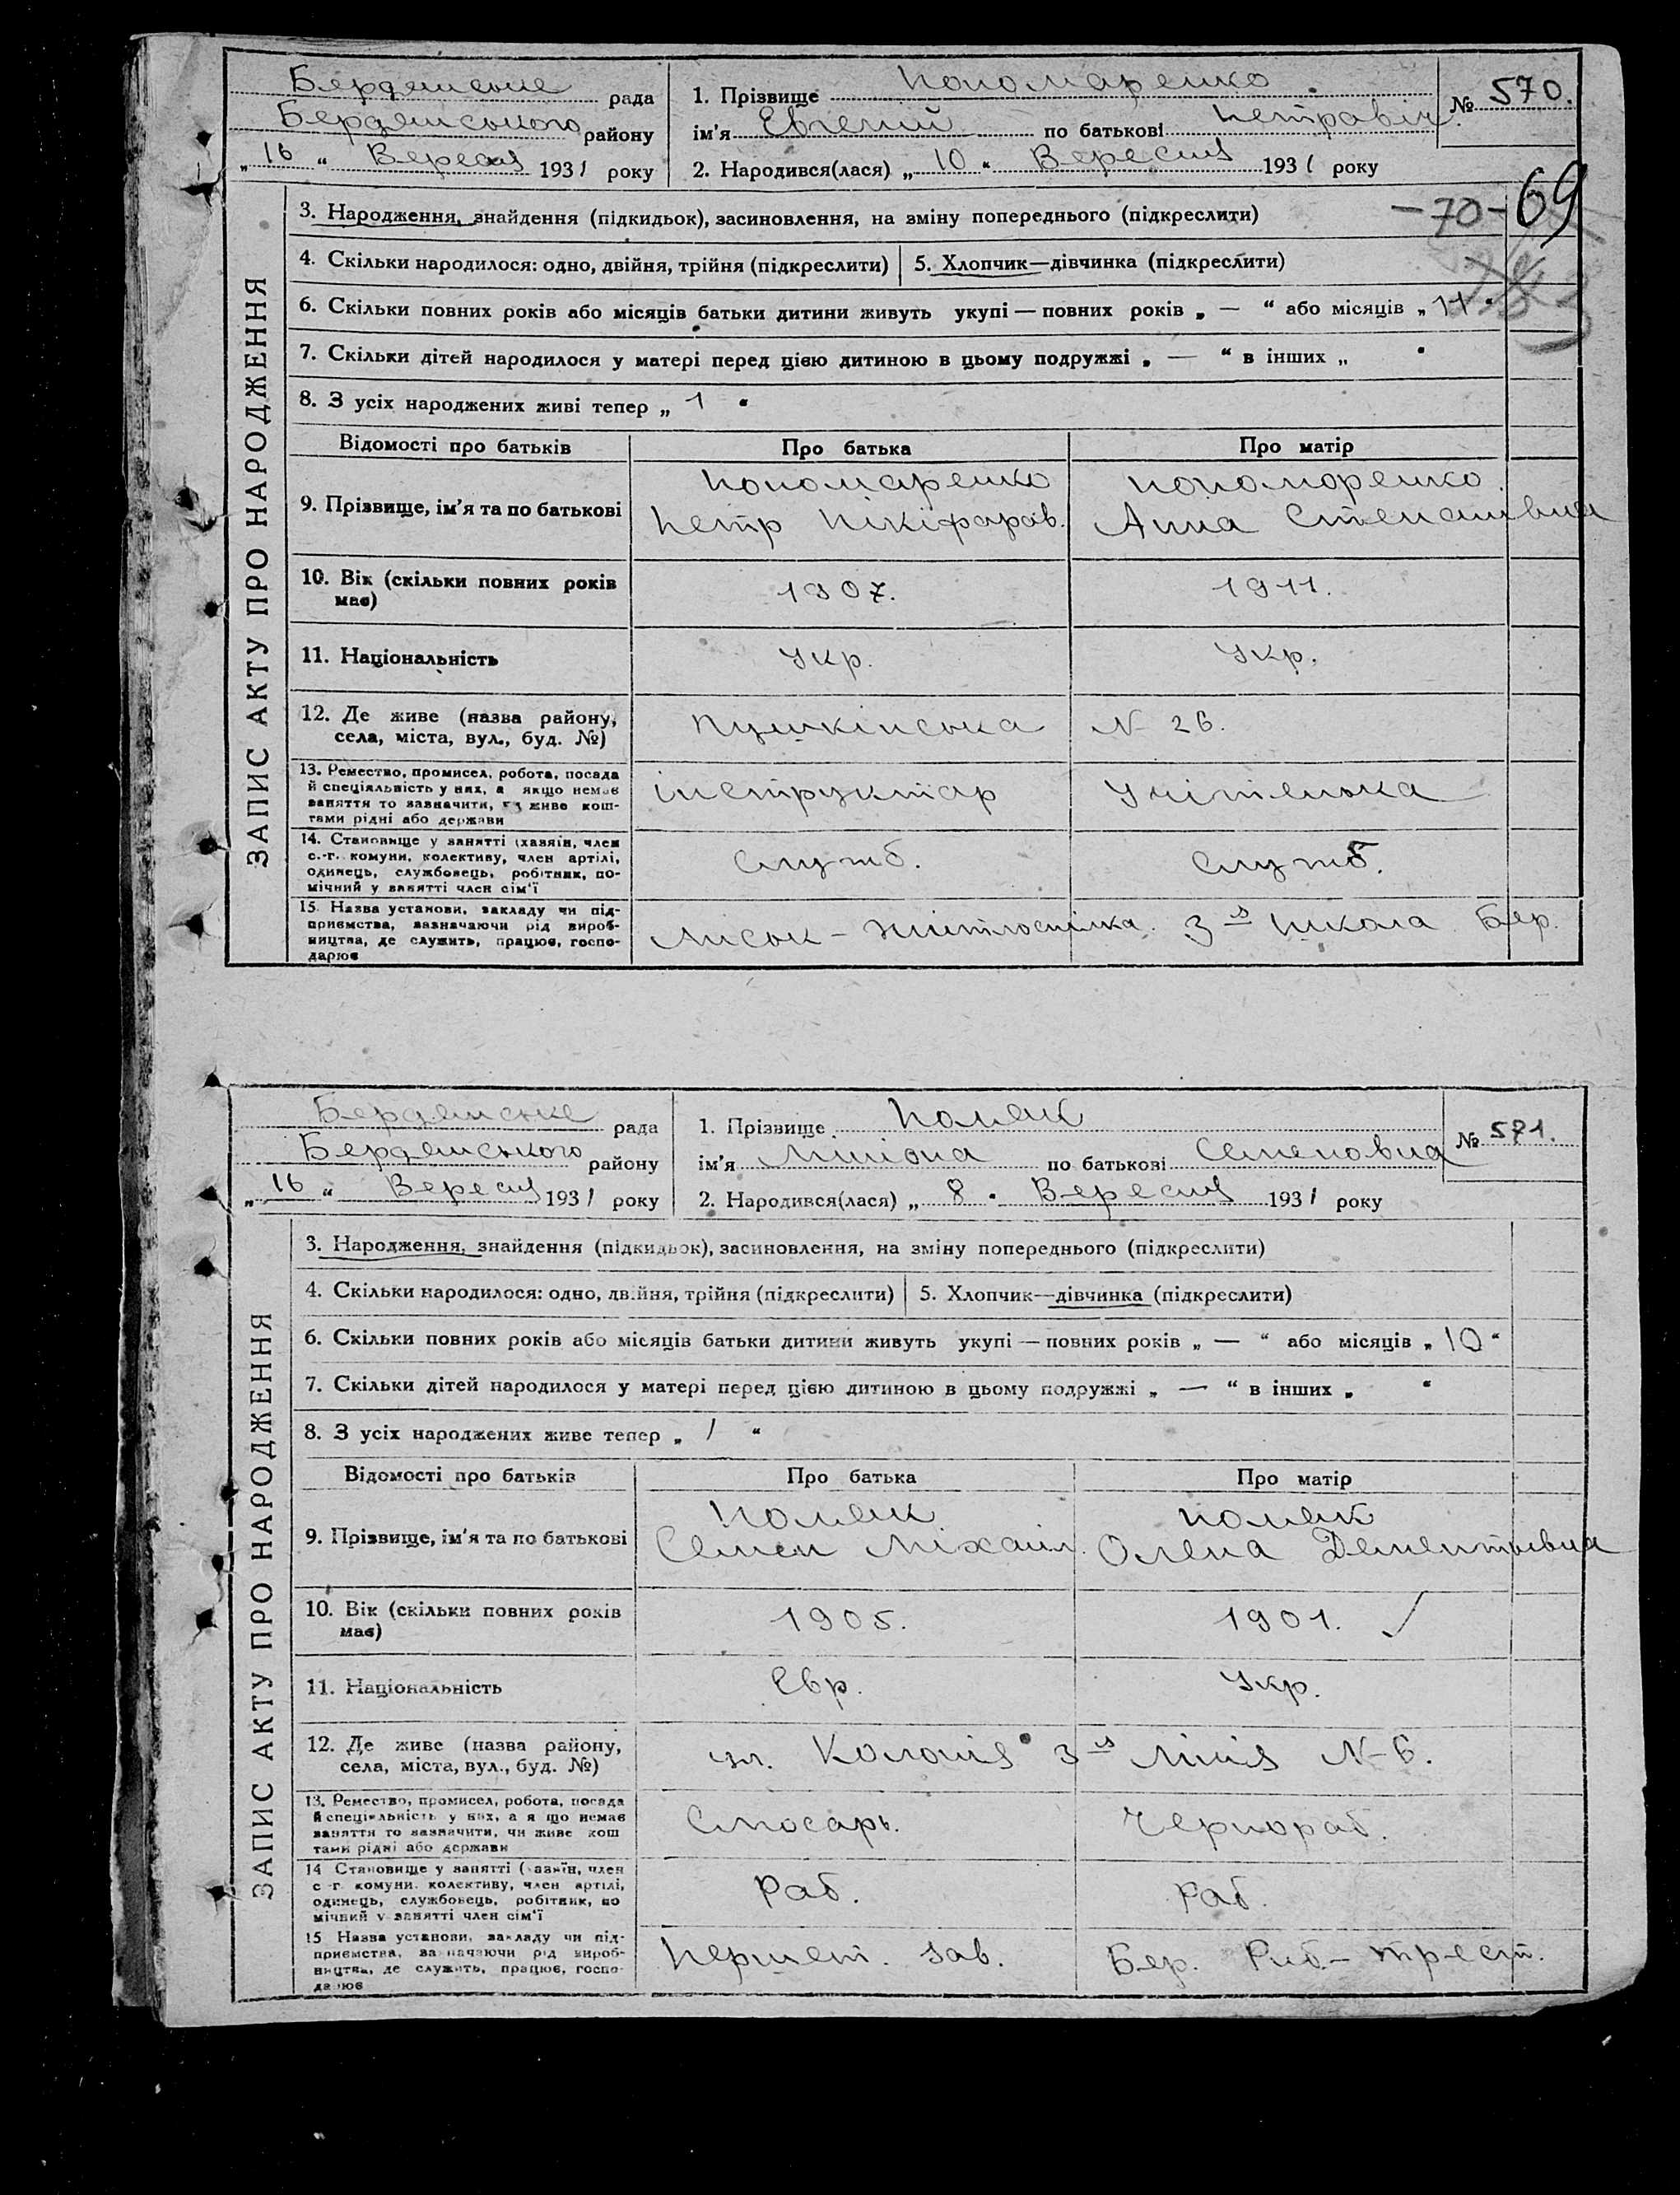 Бердянське рада
Бердянського району
„ 16 “ Вересня 1931 року
1. Прізвище Пономаренко
ім'я Евгений по батькові Петровіч
2. Народився(лася) „ 10 “ Вересня 1931 року
№ 570.
3. Народження, знайдення (підкидьок), засиновлення, на зміну попереднього (підкреслити)
-70- 69
4. Скільки народилося: одно, двійня, трійня (підкреслити)
5. Хлопчик—дівчинка (підкреслити)
6. Скільки повних років або місяців батьки дитини живуть укупі — повних років „ — “ або місяців „ 11 “
7. Скільки дітей народилося у матері перед цією дитиною в цьому подружжі „ — “ в інших „ “
8. З усіх народжених живі тепер „ 1 “
ЗАПИС АКТУ ПРО НАРОДЖЕННЯ
Відомості про батьків Про батька Про матір
9. Прізвище, ім'я та по батькові
Пономаренко
Петр Нікіфаров.
Пономоренко.
Анна Степановна
10. Вік (скільки повних років
має)
1907. 1911.
11. Національність Укр. Укр.
12. Де живе (назва району,
села, міста, вул., буд. №)
Пушкінська N 26.
13. Ремество, промисел, робота, посада
й спеціяльність у них, а якщо немає
заняття то зазначити, чи живе кош-
тами рідні або держави
інструктар Учітелька
14. Становище у занятті (хазяїн, член
с.-г. комуни, колективу, член артілі,
одинець, службовець, робітник, по-
мічний у занятті член сім'ї
Служб. Служб.
15. Назва установи, закладу чи під-
приємства, зазначаючи рід вироб-
ництва, де служить, працює, госпо-
дарює
Міськ - Житлоспілка. 3я школа Бер.
Бердянське рада
Бердянського району
„ 16 “ Вересня 1931 року
1. Прізвище Поляк
ім'я по батькові Семеновна
2. Народився(лася) „ 8 “ Вересня 1931 року
№ 571.
3. Народження, знайдення (підкидьок), засиновлення, на зміну попереднього (підкреслити)
4. Скільки народилося: одно, двійня, трійня (підкреслити)
5. Хлопчик—дівчинка (підкреслити)
6. Скільки повних років або місяців батьки дитини живуть укупі — повних років „ — “ або місяців „ 10 “
7. Скільки дітей народилося у матері перед цією дитиною в цьому подружжі „ — “ в інших „ “
8. З усіх народжених живе тепер „ 1 “
ЗАПИС АКТУ ПРО НАРОДЖЕННЯ
Відомості про батьків Про батька Про матір
9. Прізвище, ім'я та по батькові
Поляк
Семен Міхаил.
Поляк
Олена Дементьевна
10. Вік (скільки повних років
має)
1905. 1901.
11. Національність Евр. Укр.
12. Де живе (назва району,
села, міста, вул., буд. №)
Колонія 3я Лінія N-6.
13. Ремество, промисел, робота, посада
й спеціяльність у них, а якщо немає
заняття то зазначити, чи живе кош
тами рідні або держави
Слюсарь. Чернораб.
14 Становище у занятті (хазяїн, член
с-г. комуни, колективу, член артілі,
одинець, службовець, робітник, по
мічний у занятті член сім'ї
Раб. Раб.
15 Назва установи, закладу чи під-
приємства, зазначаючи рід вироб-
ництва, де служить, працює, госпо-
дарює
Першет. зав. Бер. Риб-трест.